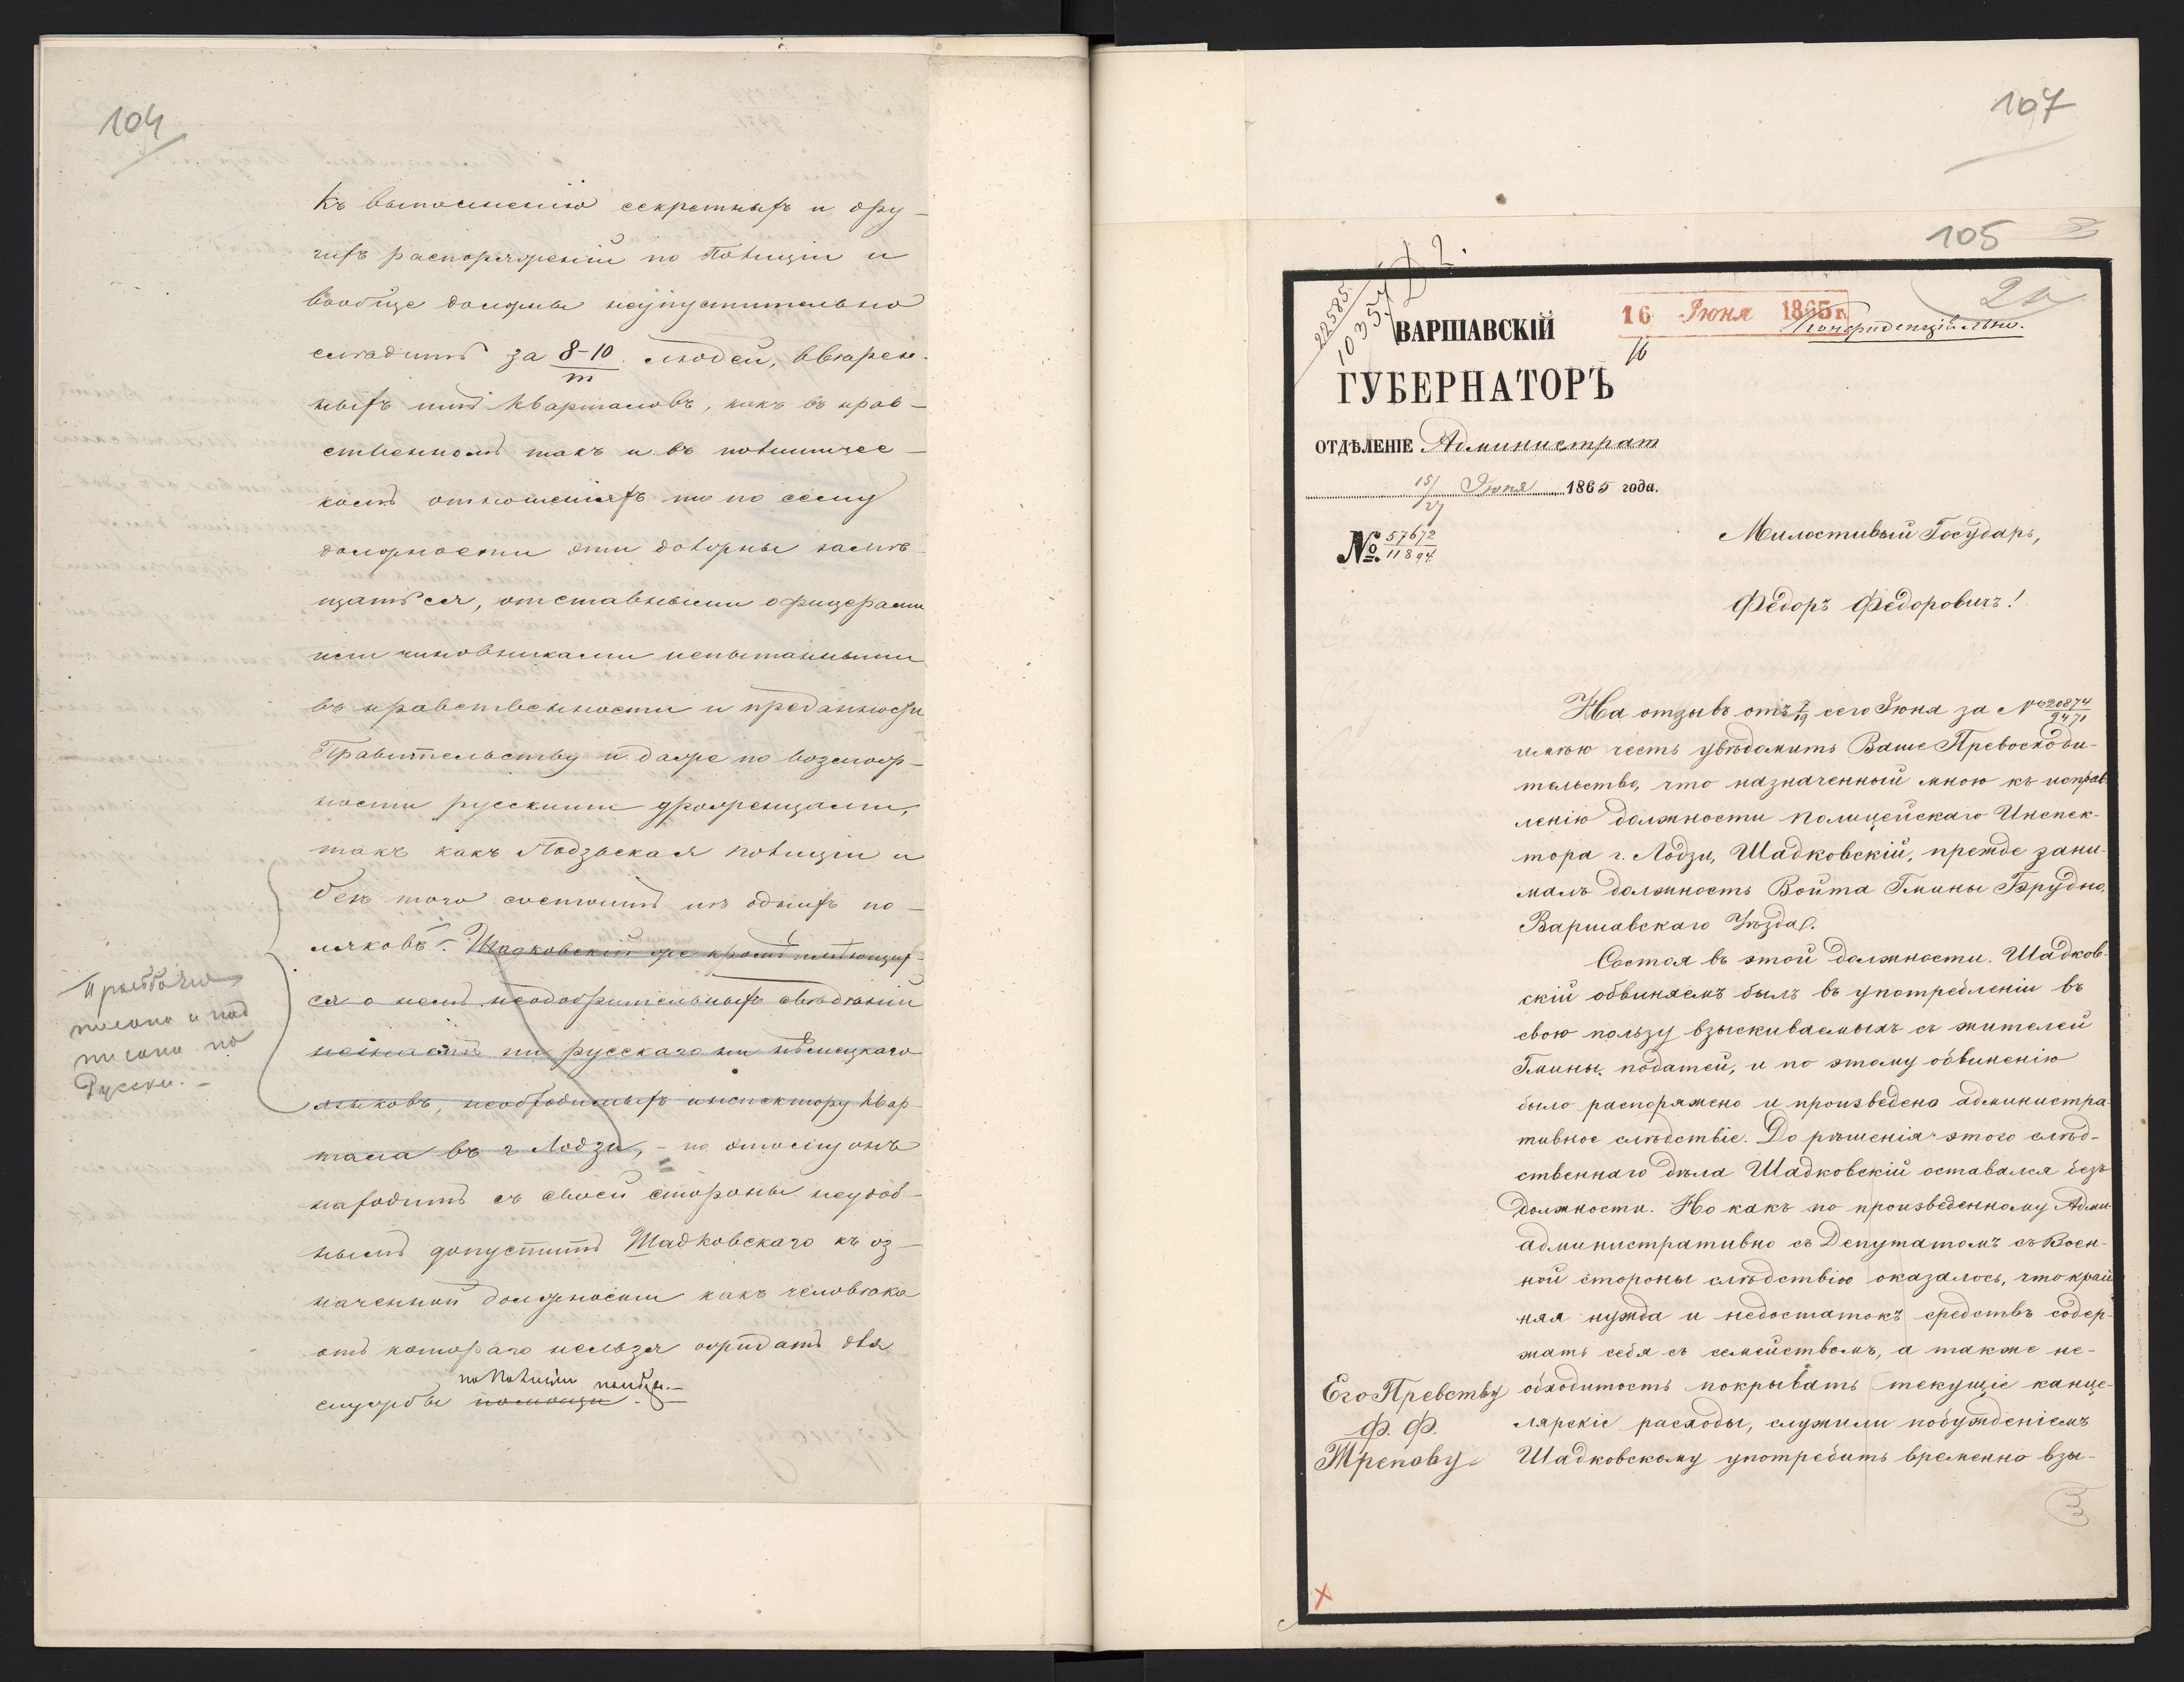 104
Къ выполненію секретныхъ и дру-
гихъ распоряженій по Полиціи и
вообще должны неупустительно
слѣдить за 8-10/т людей, ввѣрен-
ныхъ имъ Кварталовъ, какъ въ нрав-
ственномъ такъ и въ политичес-
комъ отношеніяхъ то по сему
должности эти должны замѣ-
щаться, отставными офицерами
или чиновниками испытанными
въ нравственности и преданности
Правительству и даже по возмож-
ности русскими уроженцами,
такъ какъ Лодзьская полиціи и
безъ того состоитъ изъ однихъ по-
ляковъ. Шадковскій же кромѣ имѣющих-
ся о немъ неодобрительныхъ свѣдѣній
незнаетъ ни русскаго ни нѣмецкаго
языковъ, необходимыхъ инспектору Квар-
тала въ г Лодзи, - по этому онъ
находитъ съ своей стороны неудоб-
нымъ допустить Шадковскаго къ оз-
наченной должности какъ человѣка
отъ котораго нельзя ожидать для
по Полиціи пользы.
службы помощи
писано и под
писано по
Русски. -
107
105
2
22585
10354
ВАРШАВСКІЙ
ГУБЕРНАТОРЪ
16 Іюня 1865 г.
16
Конфиденціально.
ОТДѢЛЕНІЕ Администрат
15/27 Іюня 1865 года.
№ 57672/11894
Милостивый Государь,
Федоръ Федоровичъ!
На отзывъ отъ 7/19 сего Іюня за № 20874/9471
имѣю честь увѣдомить Ваше Превосходи-
тельство, что назначенный мною къ исправ-
ленію должности Полицейскаго Инспек-
тора г. Лодзи, Шадковскій, прежде зани-
малъ должность Войта Гмины Брудно,
Варшавскаго Уѣзда.
Состоя въ этой должности. Шадков-
скій обвиняемъ былъ въ употребленіи въ
свою пользу взыскиваемыхъ съ жителей
Гмины податей, и по этому обвиненію
было распоряжено и произведено администра-
тивное слѣдствіе. До рѣшенія этого слѣд-
ственнаго дѣла Шадковскій оставался безъ
должности. Но какъ по произведенному Адми-
административно съ Депутатомъ съ Воен-
ной стороны слѣдствію оказалось, что край
няя нужда и недостатокъ средствъ содер-
жать себя съ семействомъ, а также не-
обходимость покрывать текущіе канце-
лярскіе расходы, служили побужденіемъ
Шадковскому употребить временно взы-
Его Превству
Ф. Ф.
Трепову